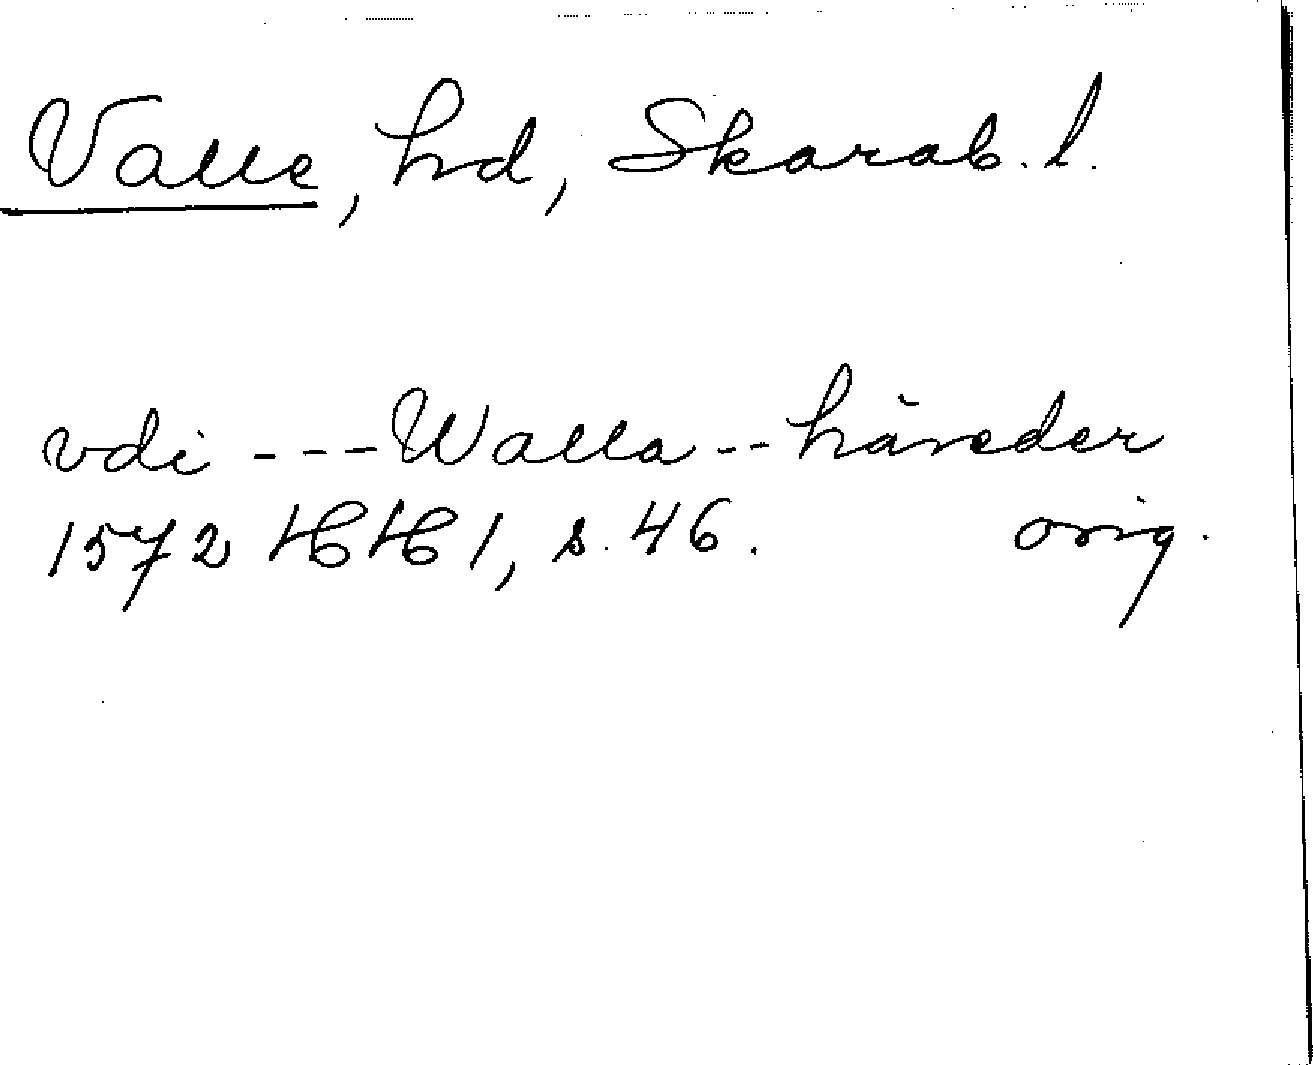 Valle, hd, Skarab. l.
vdi --- Walla -- häreder
1572 HH 1, s. 46. orig.